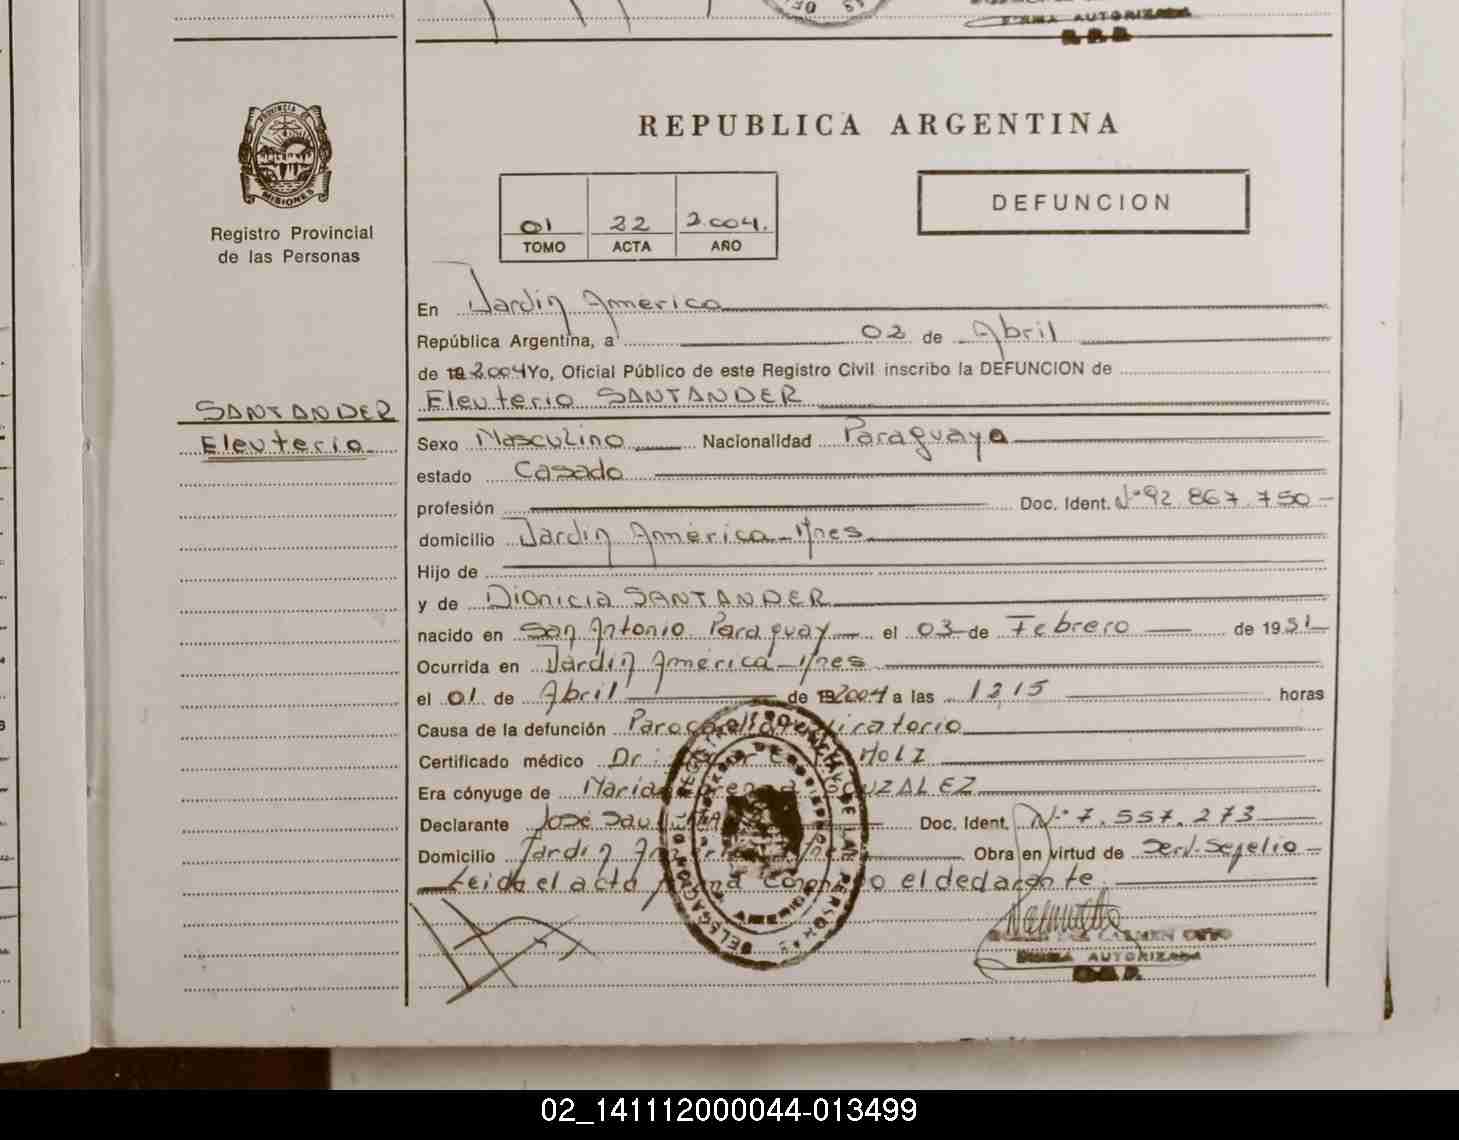 FIRMA AUTORIZADA
R. P. P.
PROVINCIA DE
MISIONES
Registro Provincial
de las Personas
SANTANDER
Eleuterio
REPUBLICA ARGENTINA
01 22 2.004.
TOMO ACTA AÑO
DEFUNCION
En Jardín América
República Argentina, a 02 de Abril
de 19 2.004 Yo, Oficial Público de este Registro Civil inscribo la DEFUNCION de
Eleuterio SANTANDER
Sexo Masculino Nacionalidad Paraguaya
estado Casado
profesión Doc. Ident. Nº 92.867.750
domicilio Jardín América - Mnes
Hijo de
y de Dionicia SANTANDER
nacido en San Antonio Paraguay el 03 de Febrero de 1951
Ocurrida en Jardín América - Mnes
el 01 de Abril de 19 2004 a las 12,15 horas
Causa de la defunción Paro
Certificado médico Dr: HOLZ
Era cónyuge de Maria
Declarante José Saul Doc. Ident. Nº 7.557.273
Domicilio Jardín América Mnes Obra en virtud de Serv. Sepelio
Leida el acta firma conmigo el declarante.
DEL CARMEN OTTO
FIRMA AUTORIZADA
R. P. P.
02_141112000044-013499